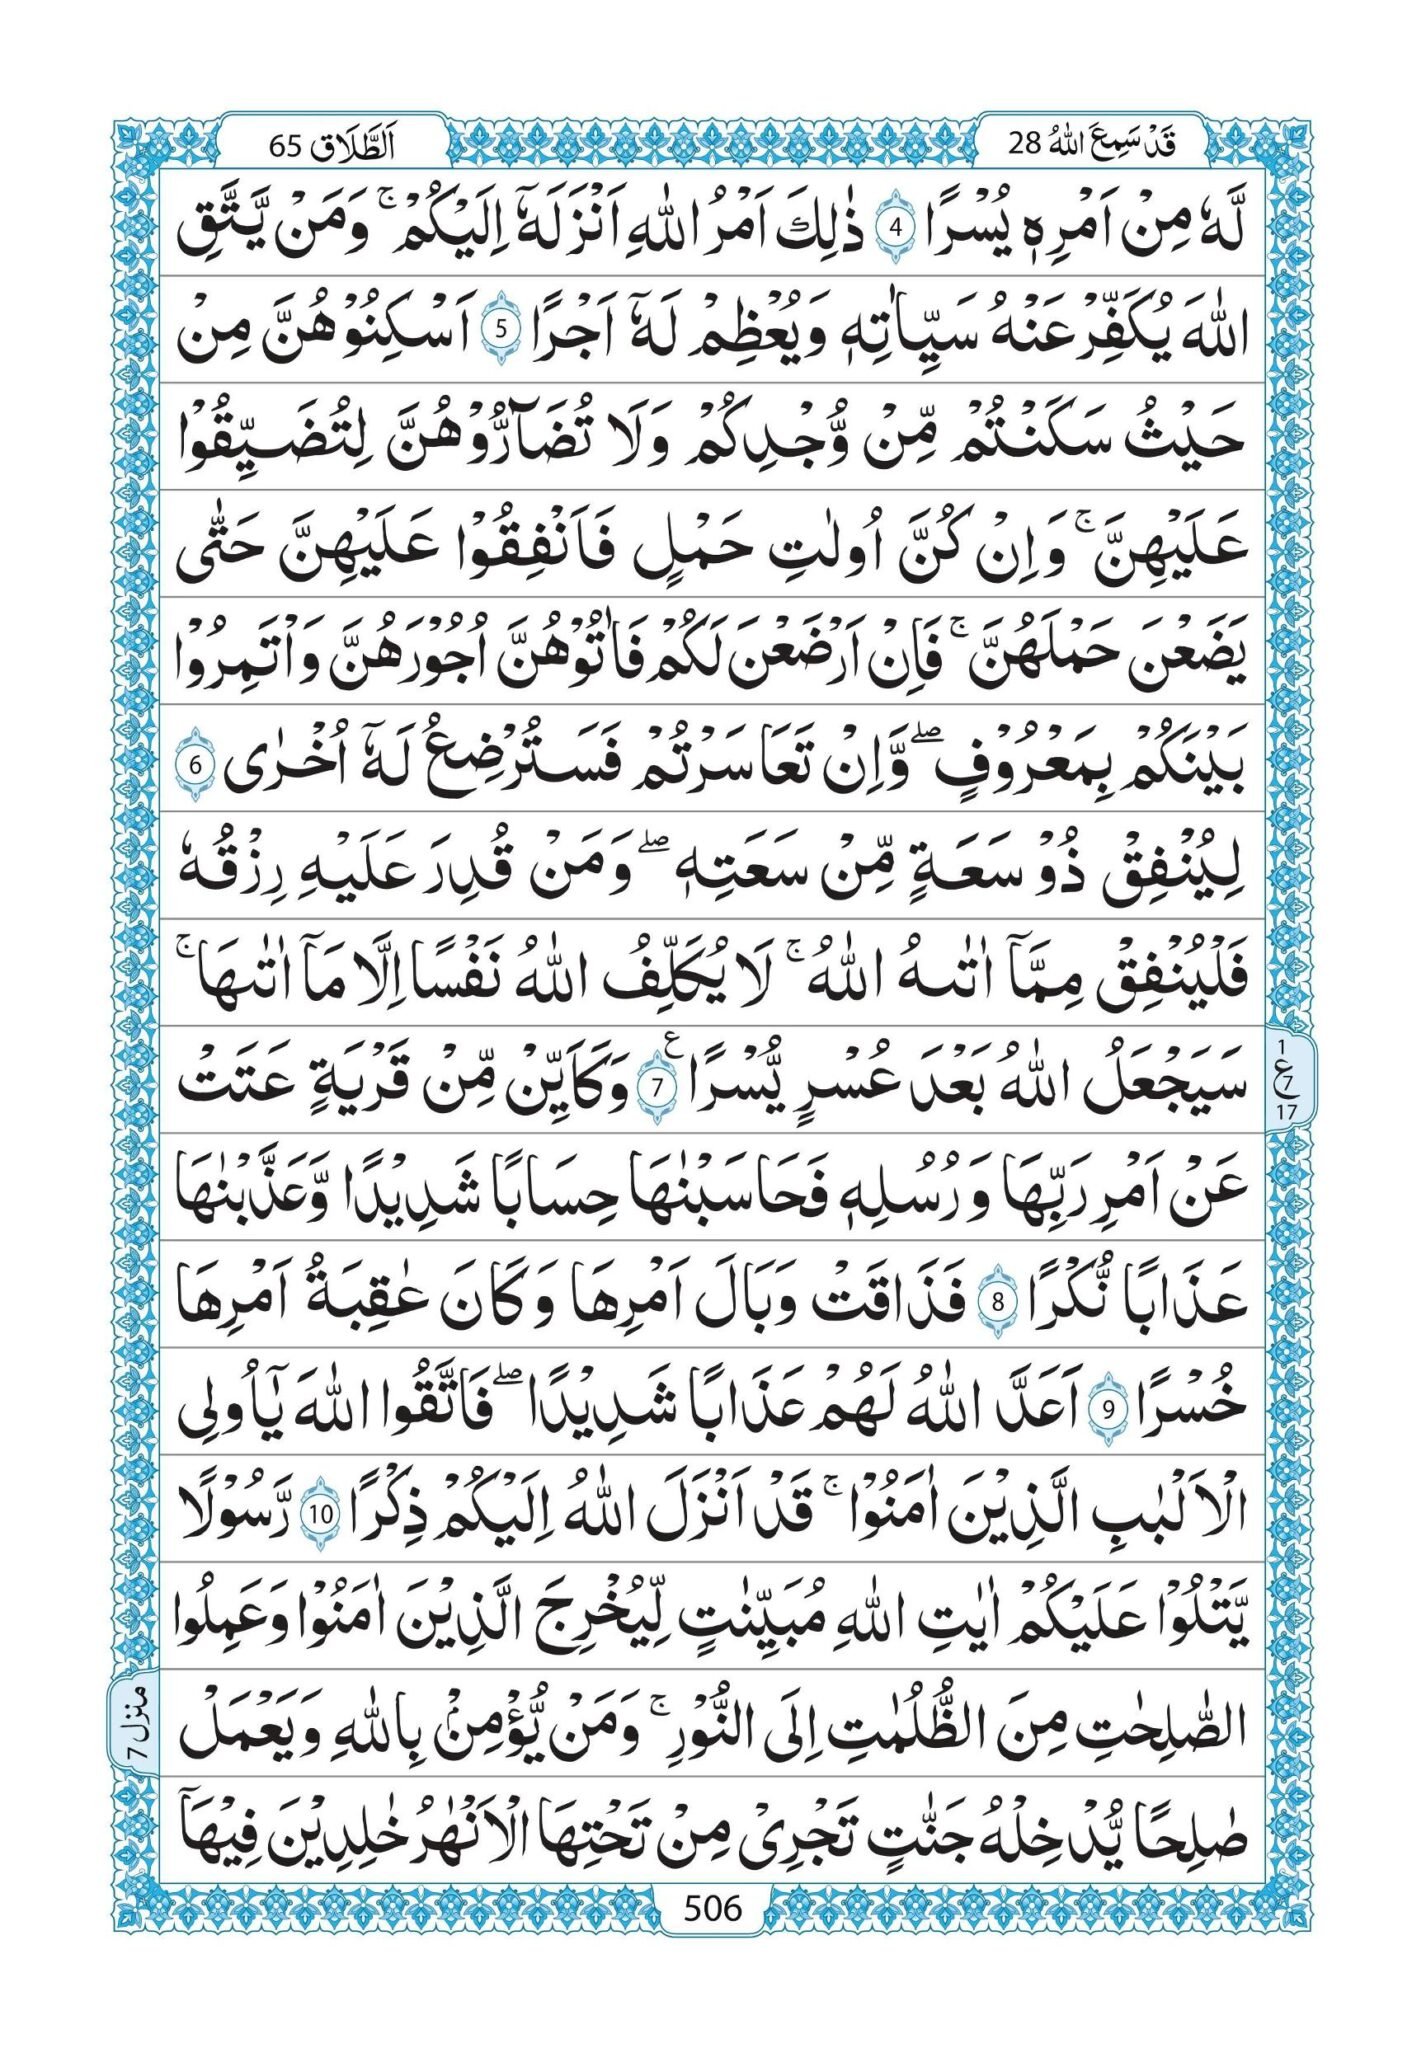 قَدْ سَمِعَ اللّٰهُ 28
اَلطَّلَاق 65
لَّهٗ مِنْ اَمْرِهٖ يُسْرًا 4 ذٰلِكَ اَمْرُ اللّٰهِ اَنْزَلَهٗۤ اِلَيْكُمْ ۚ وَمَنْ يَّتَّقِ
اللّٰهَ يُكَفِّرْ عَنْهُ سَيِّاٰتِهٖ وَيُعْظِمْ لَهٗۤ اَجْرًا 5 اَسْكِنُوْهُنَّ مِنْ
حَيْثُ سَكَنْتُمْ مِّنْ وُّجْدِكُمْ وَلَا تُضَآرُّوْهُنَّ لِتُضَيِّقُوْا
عَلَيْهِنَّ ۚ وَاِنْ كُنَّ اُولٰتِ حَمْلٍ فَاَنْفِقُوْا عَلَيْهِنَّ حَتّٰى
يَضَعْنَ حَمْلَهُنَّ ۚ فَاِنْ اَرْضَعْنَ لَكُمْ فَاٰتُوْهُنَّ اُجُوْرَهُنَّ وَاْتَمِرُوْا
بَيْنَكُمْ بِمَعْرُوْفٍ ۖ وَّاِنْ تَعَاسَرْتُمْ فَسَتُرْضِعُ لَهٗۤ اُخْرٰى 6
لِيُنْفِقْ ذُوْ سَعَةٍ مِّنْ سَعَتِهٖ ۖ وَمَنْ قُدِرَ عَلَيْهِ رِزْقُهٗ
فَلْيُنْفِقْ مِمَّاۤ اٰتٰىهُ اللّٰهُ ۚ لَا يُكَلِّفُ اللّٰهُ نَفْسًا اِلَّا مَاۤ اٰتٰىهَا ۚ
سَيَجْعَلُ اللّٰهُ بَعْدَ عُسْرٍ يُّسْرًا 7 ع وَكَاَيِّنْ مِّنْ قَرْيَةٍ عَتَتْ
1
ع
7
17
عَنْ اَمْرِ رَبِّهَا وَرُسُلِهٖ فَحَاسَبْنٰهَا حِسَابًا شَدِيْدًا وَّعَذَّبْنٰهَا
عَذَابًا نُّكْرًا 8 فَذَاقَتْ وَبَالَ اَمْرِهَا وَكَانَ عٰقِبَةُ اَمْرِهَا
خُسْرًا 9 اَعَدَّ اللّٰهُ لَهُمْ عَذَابًا شَدِيْدًا ۖ فَاتَّقُوا اللّٰهَ يٰۤاُولِى
الْاَلْبٰبِ الَّذِيْنَ اٰمَنُوْا ۚ قَدْ اَنْزَلَ اللّٰهُ اِلَيْكُمْ ذِكْرًا 10 رَّسُوْلًا
يَّتْلُوْا عَلَيْكُمْ اٰيٰتِ اللّٰهِ مُبَيِّنٰتٍ لِّيُخْرِجَ الَّذِيْنَ اٰمَنُوْا وَعَمِلُوا
الصّٰلِحٰتِ مِنَ الظُّلُمٰتِ اِلَى النُّوْرِ ۚ وَمَنْ يُّؤْمِنْۢ بِاللّٰهِ وَيَعْمَلْ
منزل 7
صٰلِحًا يُّدْخِلْهُ جَنّٰتٍ تَجْرِىْ مِنْ تَحْتِهَا الْاَنْهٰرُ خٰلِدِيْنَ فِيْهَاۤ
506